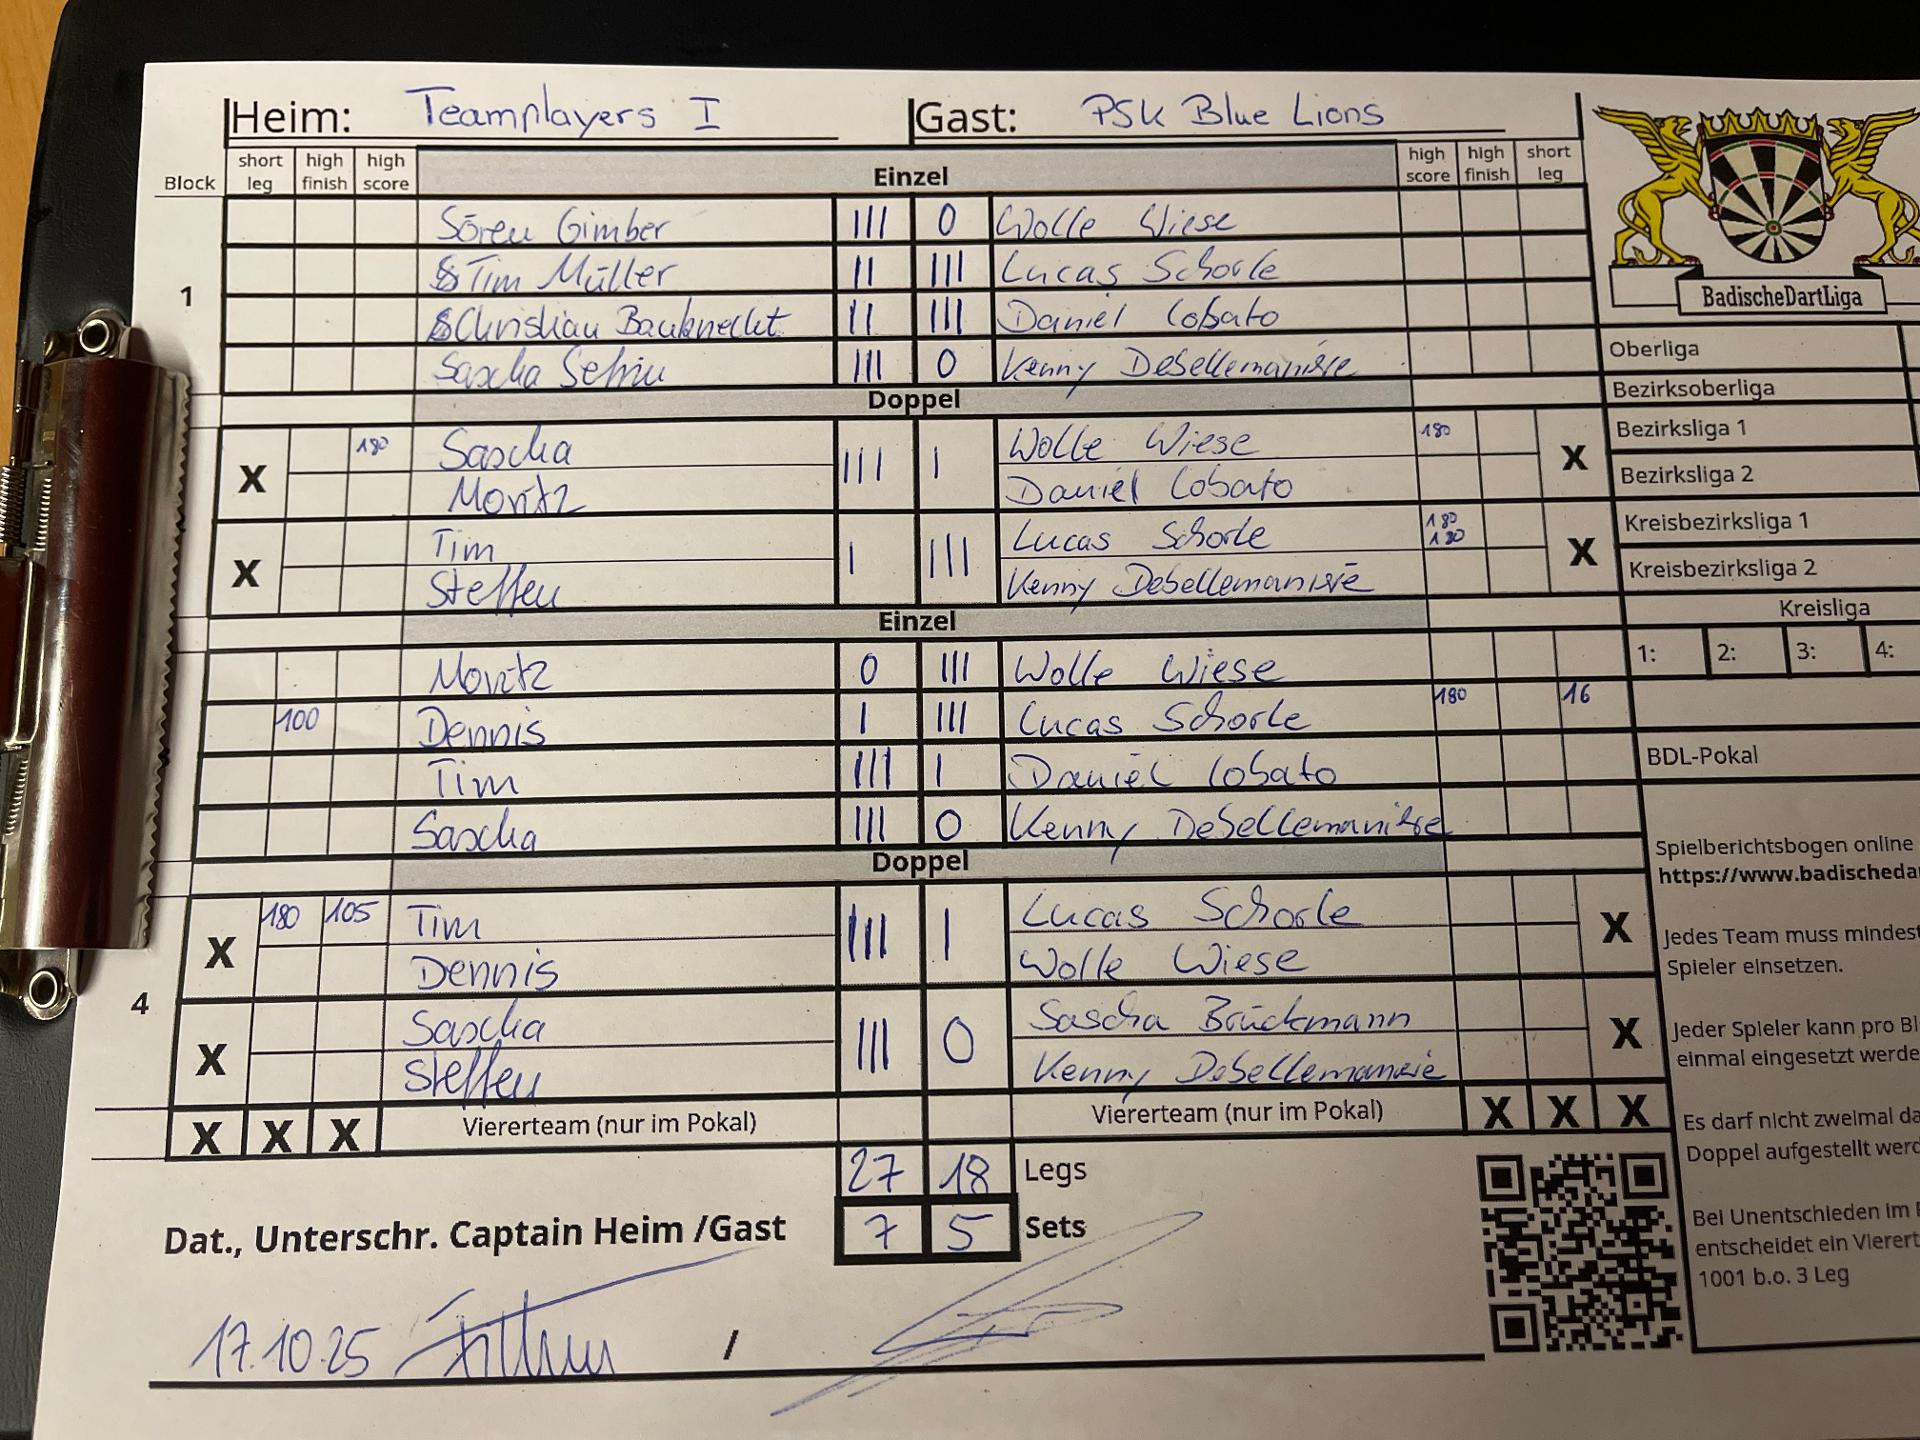 Heim: Teamplayers I Gast: PSK Blue Lions
Block short leg high finish high score Einzel high score high finish short leg
Sören Gimber III 0 Wolle Wiese
1
Tim Müller II III Lucas Schorle
Christian Bauknecht II III Daniel Lobato
Sascha III 0 Kenny
Doppel
X 180 Sascha III I Wolle Wiese 180 X
Moritz Daniel Lobato
X Tim I III Lucas Schorle 180 180 X
Steffen Kenny
Einzel
Moritz 0 III Wolle Wiese
100 Dennis I III Lucas Schorle 180 16
Tim III I Daniel Lobato
Sascha III 0 Kenny
Doppel
X 180 105 Tim III I Lucas Schorle X
Dennis Wolle Wiese
4
X Sascha III 0 Sascha Brückmann X
Steffen Kenny
X X X Viererteam (nur im Pokal) Viererteam (nur im Pokal) X X X
27 18 Legs
7 5 Sets
Dat., Unterschr. Captain Heim /Gast
17.10.25 /
BadischeDartLiga
Oberliga
Bezirksoberliga
Bezirksliga 1
Bezirksliga 2
Kreisbezirksliga 1
Kreisbezirksliga 2
Kreisliga
1: 2: 3: 4:
BDL-Pokal
Spielberichtsbogen online
https://www.badischeda
Jedes Team muss mindest
Spieler einsetzen.
Jeder Spieler kann pro Bl
einmal eingesetzt werde
Es darf nicht zweimal da
Doppel aufgestellt werd
Bei Unentschieden im P
entscheidet ein Vierert
1001 b.o. 3 Leg